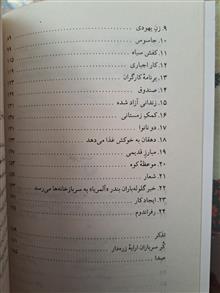 ۹. زن یهودی
۱۰. جاسوس
۱۱. کفش سیاه
۱۲. کار اجباری
۱۳. برنامهٔ کارگران
۱۴. صندوق
۱۵. زندانی آزاد شده
۱۶. کمک زمستانی
۱۷. دو نانوا
۱۸. دهقان به خوکش غذا می‌دهد
۱۹. مبارز قدیمی
۲۰. موعظهٔ کوه
۲۱. شعار
۲۲. خبر گلوله‌باران بندر «آلمریا» به سربازخانه‌ها می‌رسد
۲۳. ایجاد کار
۲۴. رفراندوم
تذکر
کُر سربازان ارابهٔ زره‌دار
مبدا